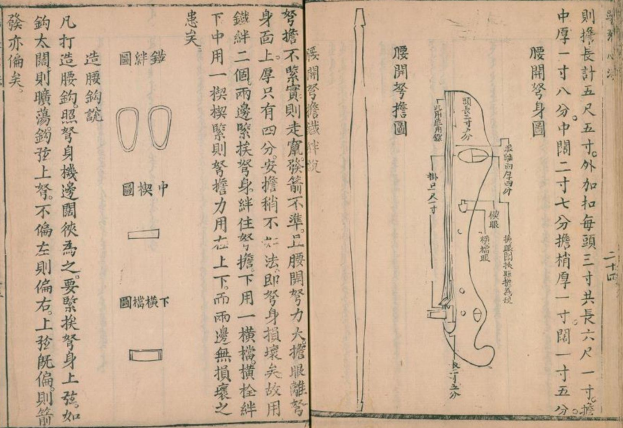 則擔長計五尺五寸。外加扣每頭三寸共長六尺一寸。擔
中厚一寸八分。中闊二寸七分擔梢厚一寸闊一寸五分
腰開弩身圖
腰開弩擔圖
腰開弩擔鐵絆說
弩擔不緊實則走竄發箭不準。且腰開弩力大擔眼離弩
身面上。厚只有四分。安擔稍不如法。即弩身損壞矣故用
鐵絆二個兩邊緊挨弩身絆住弩擔。下用一橫檔。橫栓絆
下中用一楔楔緊。則弩擔力用在上下。而兩邊無損壞之
患矣。
鐵絆圖
中楔圖
下橫檔圖
造腰鈎說
凡打造腰鈎。照弩身機邊闊狹為之。要緊挨弩身上弦。如
鈎太闊則曠蕩鈎弦上弩。不偏左則偏右。上弦既偏。則箭
發亦偏矣。